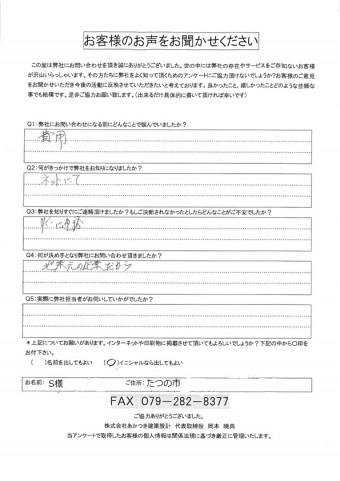 お客様のお声をお聞かせください
この度は弊社にお問い合わせを頂き誠にありがとうございました。世の中には弊社の存在やサービスをご存知ないお客様
が沢山いらっしゃいます。その方たちに弊社をよく知って頂くためのアンケートにご協力頂けないでしょうか？お客様のご意見
をお聞かせいただき今後の活動に反映させていただきたいと考えております。良かったこと、嬉しかったことどのような些細な
事でも結構です。是非ご協力お願い致します。（出来るだけ具体的に書いて頂ければ幸いです）
Q1：弊社にお問い合わせになる前にどんなことで悩んでいましたか？
費用
Q2：何がきっかけで弊社をお知りになりましたか？
ネットにて
Q3：弊社を知りすぐにご連絡頂けましたか？もしご決断されなかったとしたらどんなことがご不安でしたか？
すぐに連絡
Q4：何が決め手となり弊社にお問い合わせ頂きましたか？
地元の企業だから
Q5：実際に弊社担当者がお伺いしていかがでしたか？
＊上記についてお願いがあります。インターネットや印刷物に掲載させて頂いてもよろしいでしょうか？下記の中から〇印を
お付下さい。
（　）名前を出してもよい　（〇）イニシャルなら出してもよい
お名前：　S様　ご住所：　たつの市
FAX 079-282-8377
ご協力ありがとうございました。
株式会社あかつき建築設計　代表取締役　岡本　暁典
当アンケートで取得したお客様の個人情報は関係法規に基づき厳正に管理いたします。